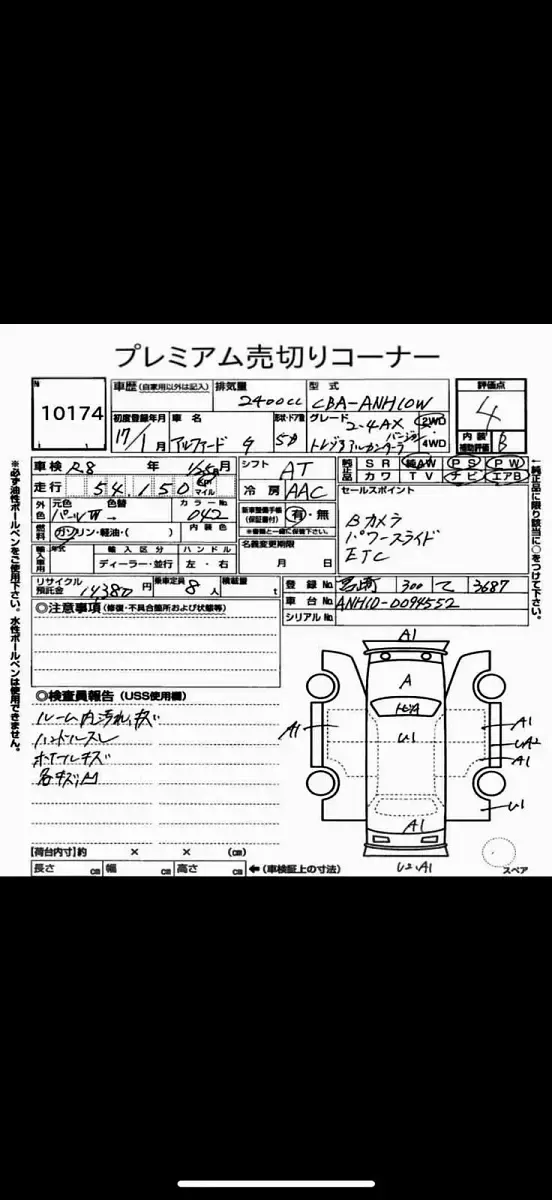 プレミアム売切りコーナー
No
10174
車歴 (自家用以外は記入)
排気量
2400cc
型式
CBA-ANH10W
評価点
4
内装補助評価
B
初度登録年月
17/1月
車名
アルファード G
形状・ドア数
5D
グレード
2.4AX
トレジャアルカンターラバージョン
2WD
4WD
車検 R8 年 月
走行 54,150 km マイル
外色 元色 色替 カラーNo.
パールW → 042
燃料 ガソリン・軽油・( ) 内装色
輸入車用 年式 輸入区分 ハンドル
ディーラー・並行 左・右
シフト AT
冷房 AAC
新車整備手帳(保証書付) 有・無
※書類と一緒に保管下さい。
名義変更期限
月 日
純正品 SR 純AW PS PW
カワ TV ナビ エアB
セールスポイント
Bカメラ
パワースライド
ETC
リサイクル預託金 14380円 乗車定員 8人 積載量 t
登録No. 300 て 3687
車台No. ANH10-0094552
シリアルNo.
◎注意事項(修復・不具合箇所および状態等)
◎検査員報告(USS使用欄)
ルーム内汚れ、キズ
ハンドルスレ
ホイルキズ
各キズ凹
A1
A
トビA
U1
A1
A1
UA2
A1
U1
A1
U2、A1
スペア
【荷台内寸】約 × × (cm)
長さ cm 幅 cm 高さ cm ←(車検証上の寸法)
※必ず油性ボールペンをご使用下さい。水性ボールペンは使用できません。
←純正品に限り該当に○をつけて下さい。